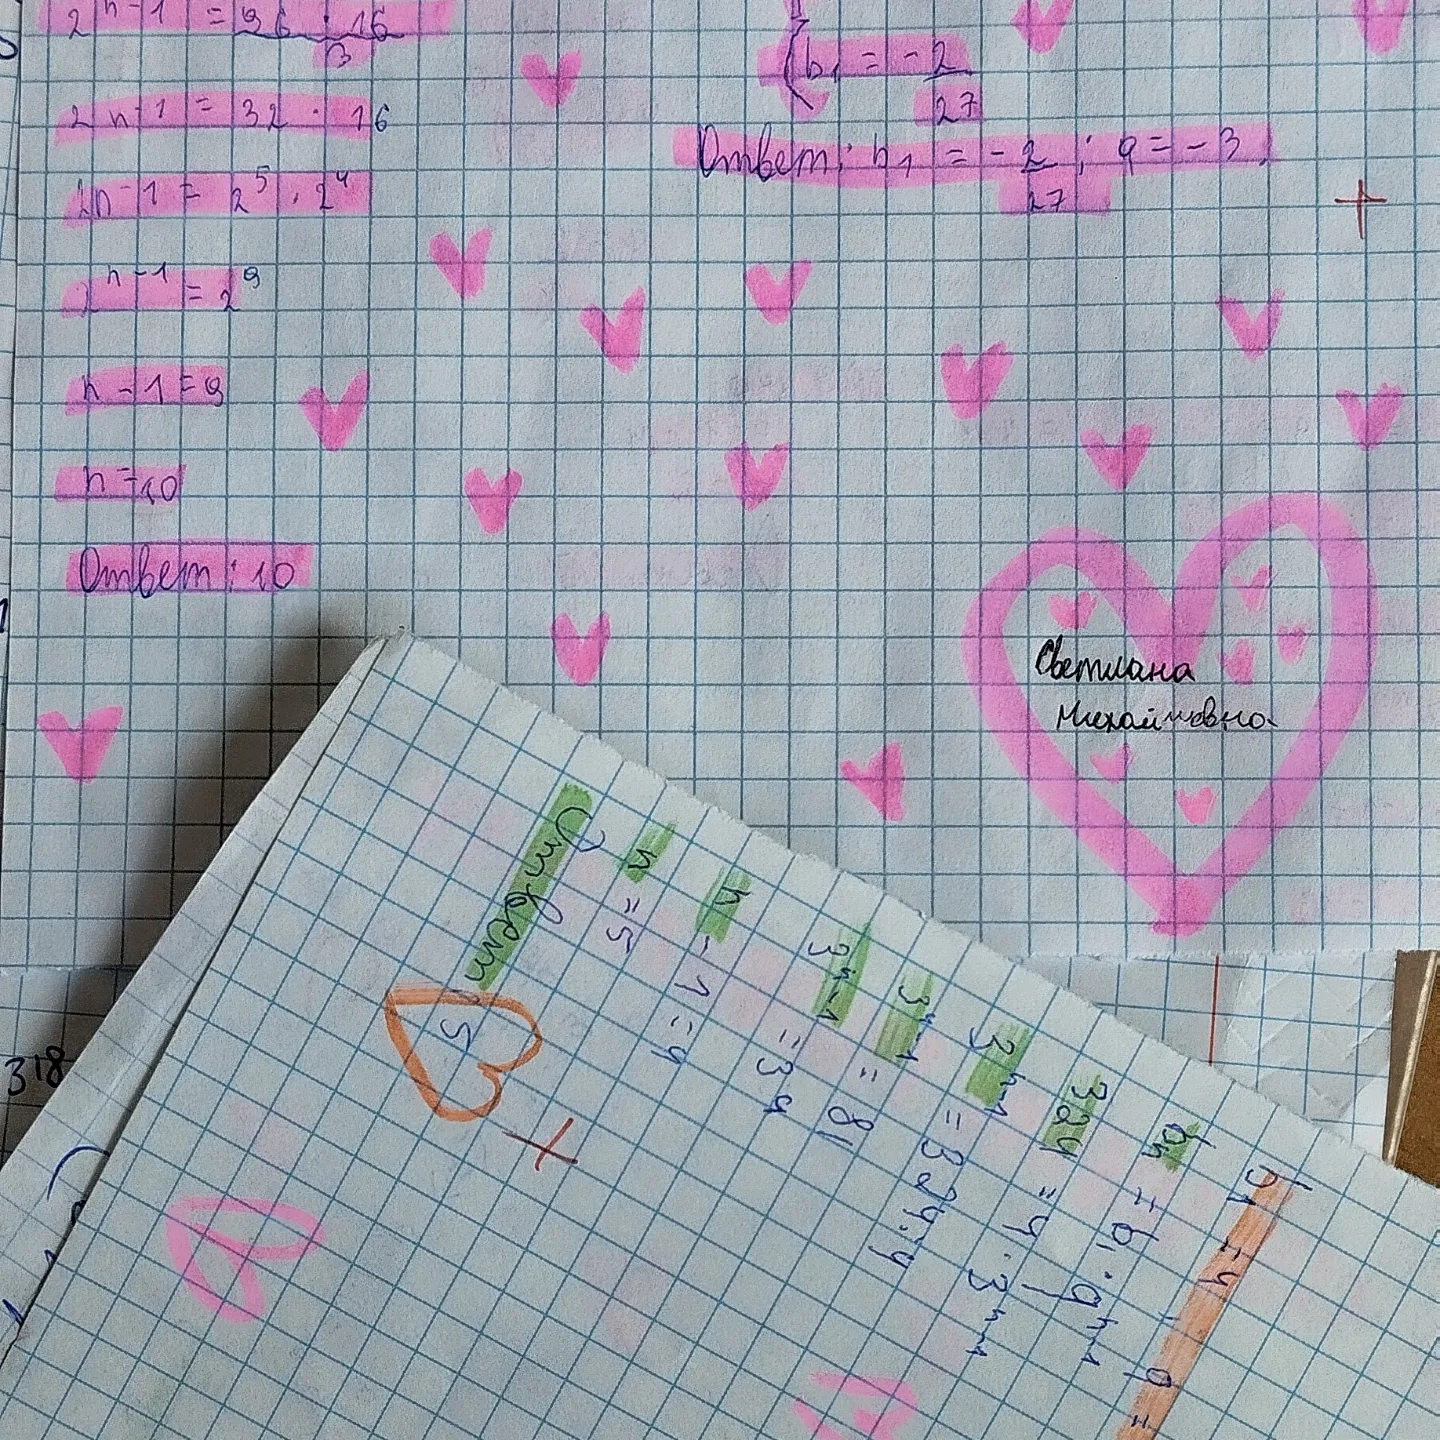 2ⁿ⁻¹ = 96 · 16
3
2ⁿ⁻¹ = 32 · 16
2ⁿ⁻¹ = 2⁵ · 2⁴
2ⁿ⁻¹ = 2⁹
n - 1 = 9
n = 10
Ответ: 10
b₁ = - 2
27
Ответ: b₁ = - 2 ; q = - 3.
27
Светлана
Михайловна
318
b₁ = 4 q =
bₙ = b₁ · qⁿ⁻¹
324 = 4 · 3ⁿ⁻¹
3ⁿ⁻¹ = 324 : 4
3ⁿ⁻¹ = 81
3ⁿ⁻¹ = 3⁴
n - 1 = 4
n = 5
Ответ: 5